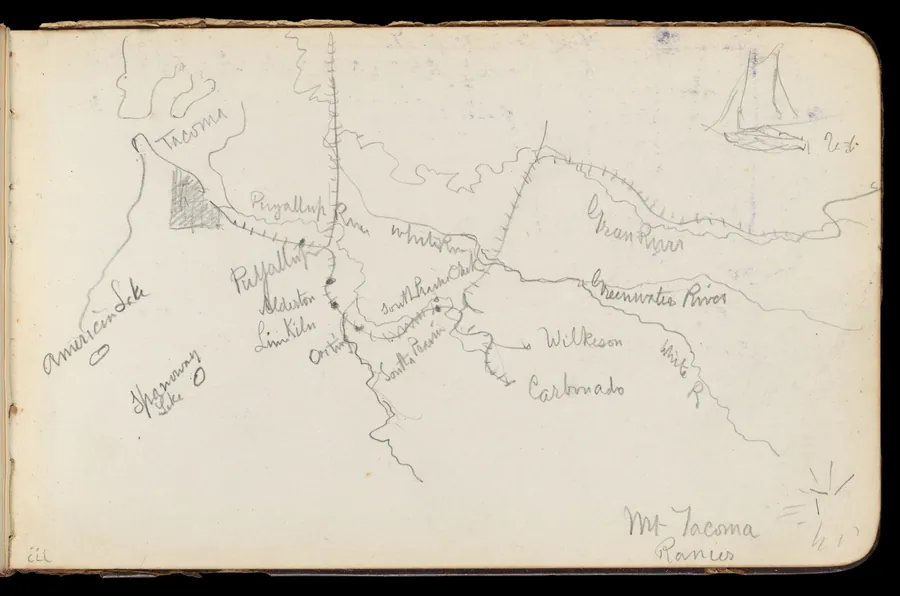 Tacoma
Puyallup River
White River
Green River
Puyallup
Alderton
Lime Kiln
Orting
South Prairie Creek
South Prairie
Greenwater River
White R
Wilkeson
Carbonado
American Lake
Spanoway
Lake
Mt Tacoma
Ranier
iii